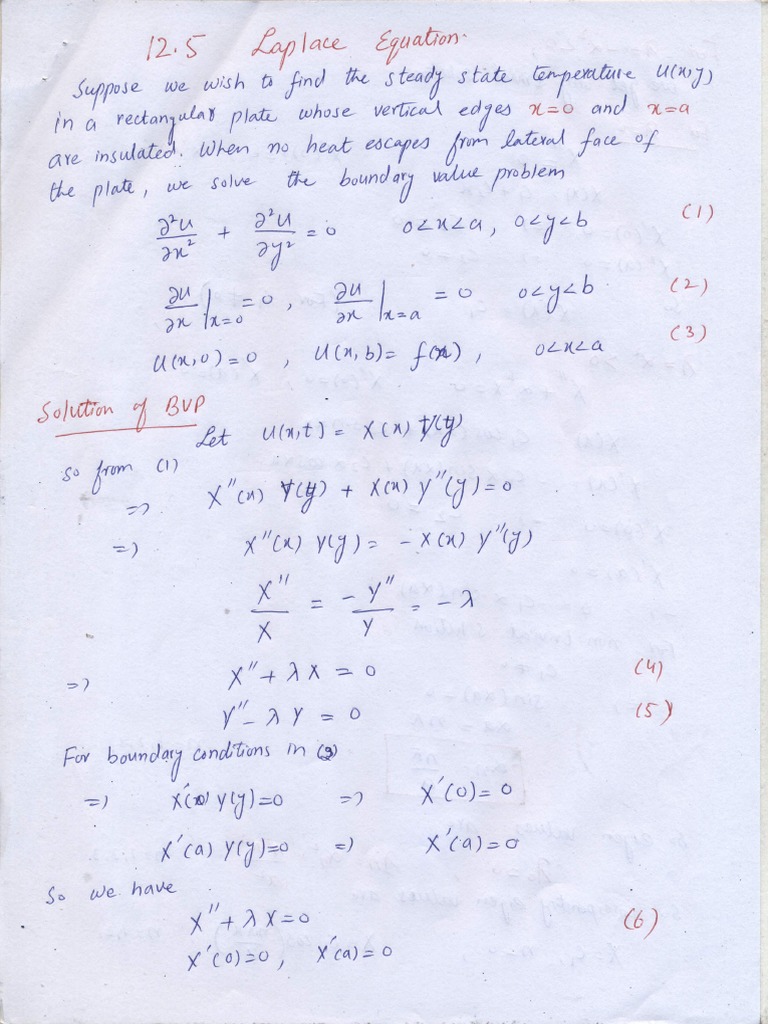 12.5 Laplace Equation.
Suppose we wish to find the steady state temperature U(x,y)
in a rectangular plate whose vertical edges x=0 and x=a
are insulated. When no heat escapes from lateral face of
the plate, we solve the boundary value problem
∂²U/∂x² + ∂²U/∂y² = 0   0<x<a, 0<y<b   (1)
∂U/∂x|x=0 = 0 , ∂U/∂x|x=a = 0   0<y<b   (2)
U(x,0)=0 , U(x,b)= f(x) , 0<x<a   (3)
Solution of BVP
Let U(x,t) = X(x) Y(y)
so from (1)
=> X''(x) Y(y) + X(x) Y''(y)=0
=> X''(x) Y(y) = - X(x) Y''(y)
X''/X = -Y''/Y = -λ
=> X'' + λ X = 0   (4)
Y'' - λ Y = 0   (5)
For boundary conditions in (2)
=> X'(0) Y(y)=0 => X'(0)=0
X'(a) Y(y)=0 => X'(a)=0
So we have
X'' + λ X=0   (6)
X'(0)=0, X'(a)=0